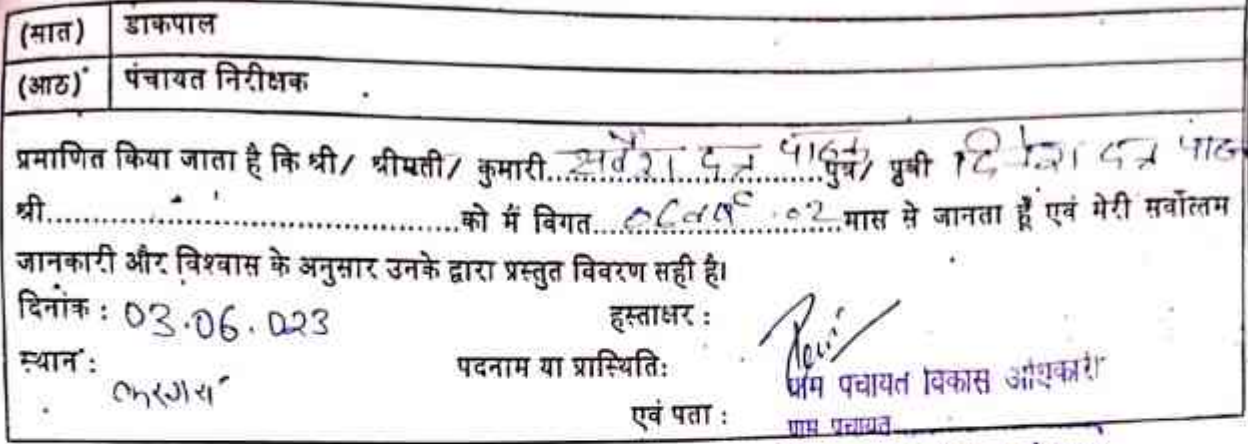 (सात) डाकपाल
(आठ) पंचायत निरीक्षक
प्रमाणित किया जाता है कि श्री/ श्रीमती/ कुमारी..... दत्त पाठक.....पुत्र/ पुत्री दत्त
श्री.....को मैं विगत.....02.....मास से जानता हूँ एवं मेरी सर्वोत्तम
जानकारी और विश्वास के अनुसार उनके द्वारा प्रस्तुत विवरण सही है।
दिनांक : 03.06.023 हस्ताक्षर :
स्थान : पदनाम या प्रास्थिति: ग्राम पंचायत विकास अधिकारी
एवं पता : ग्राम पंचायत.....